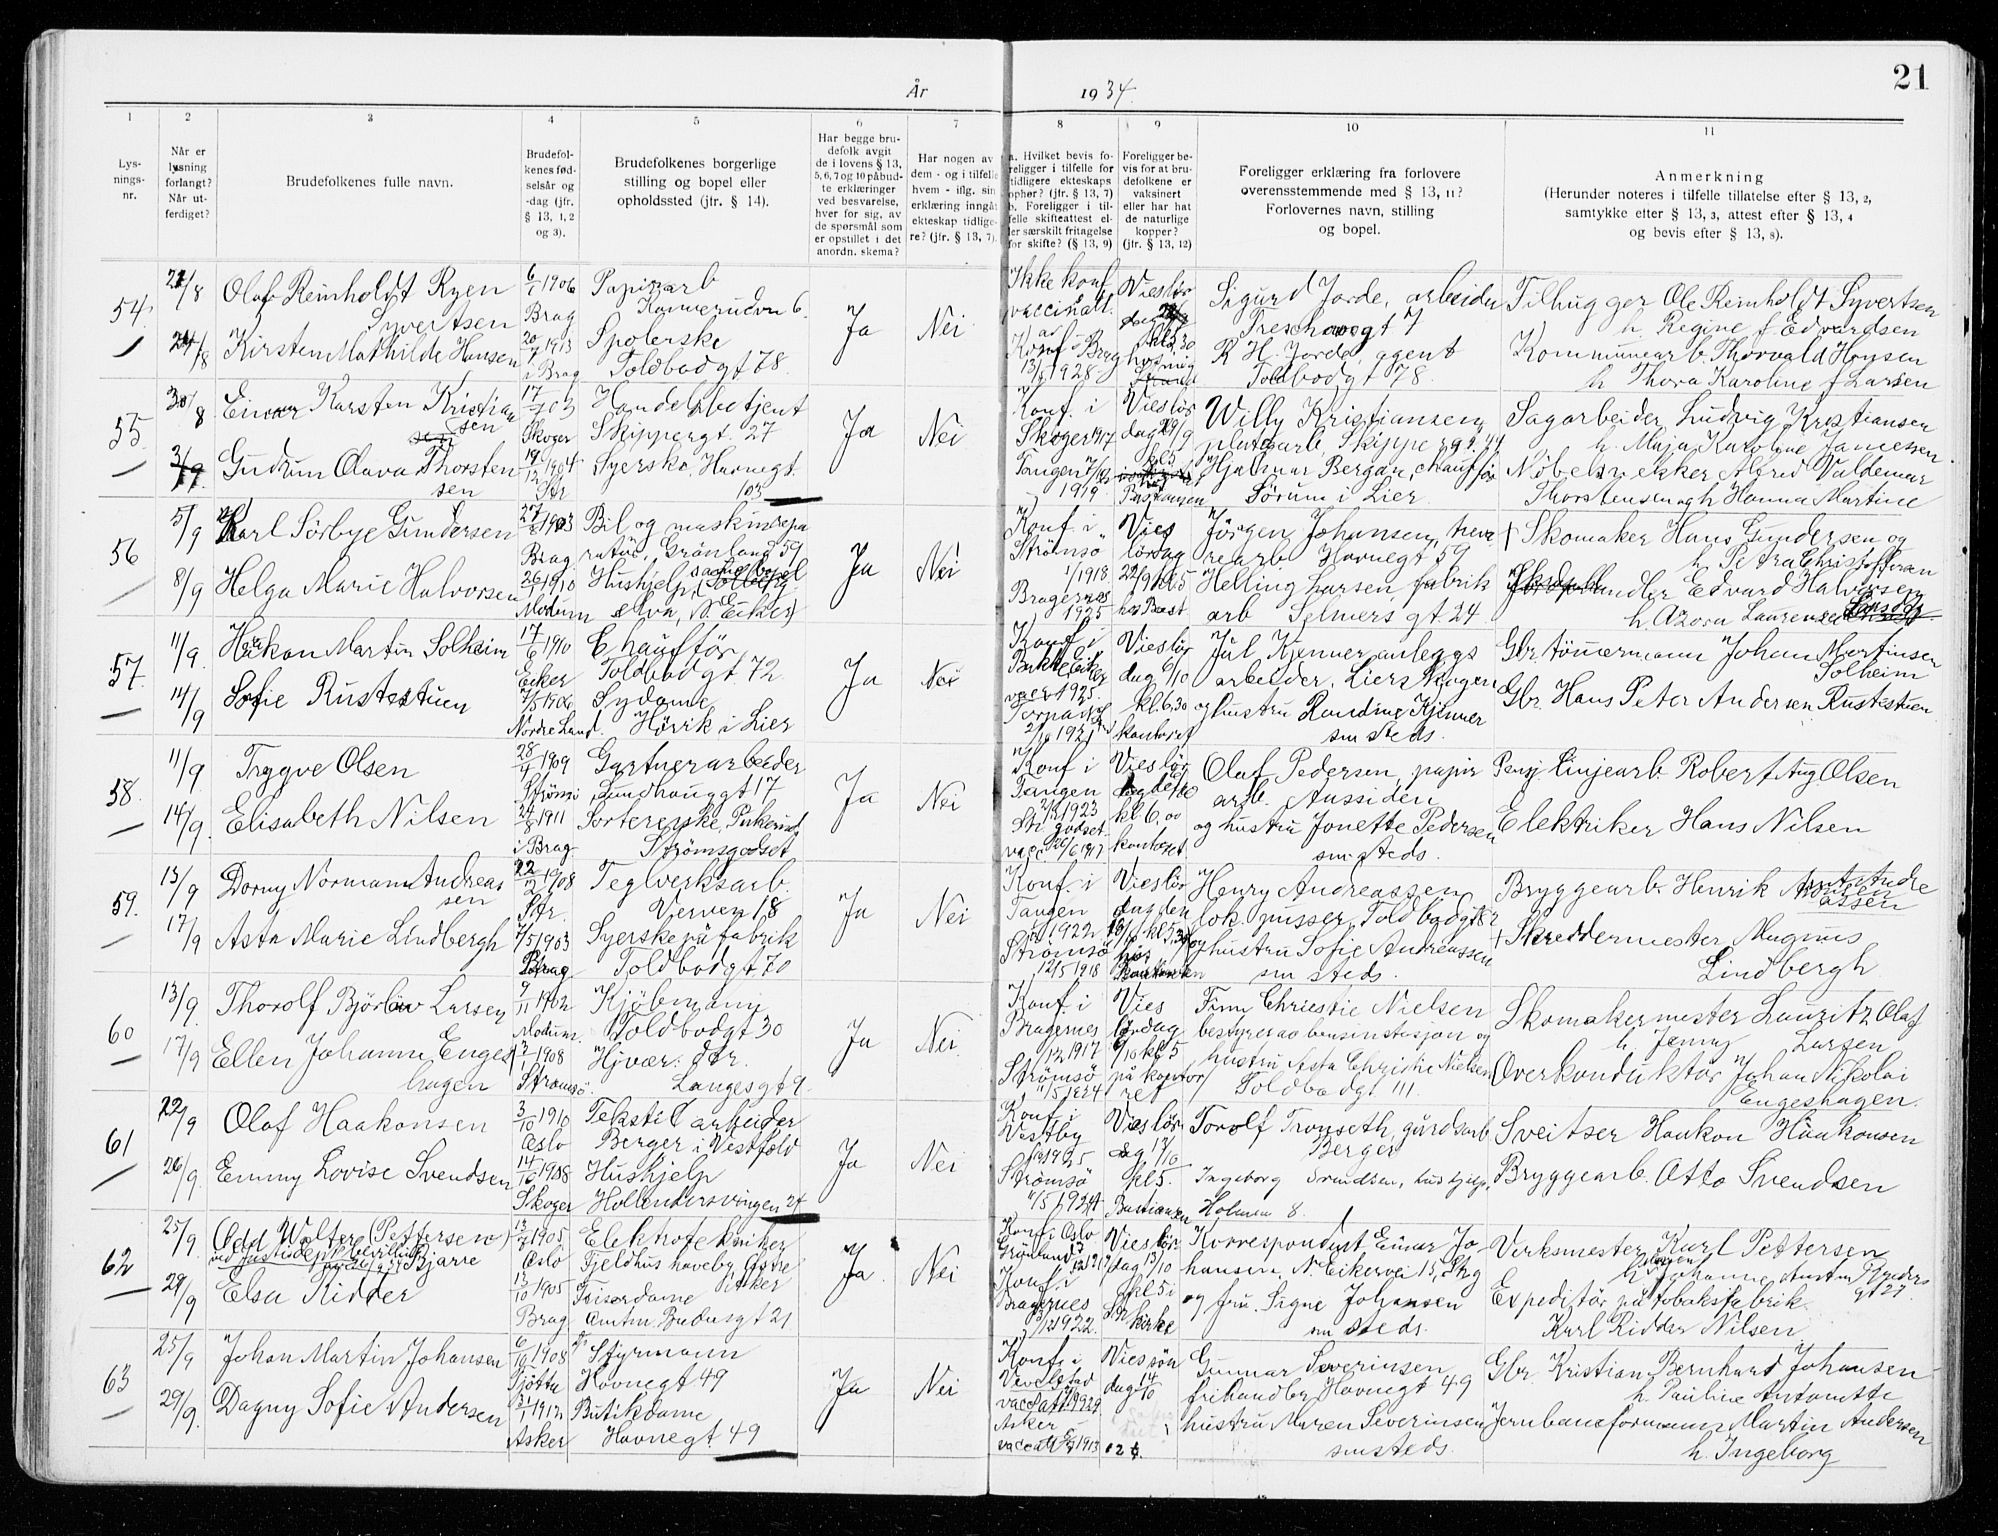 År 1934.
21
1 2 3 4 5 6 7 8 9 10 11
Lysningsnr.
Når er lysning forlangt? Når utferdiget?
Brudefolkenes fulle navn.
Brudefolkenes fødselsår og -dag (jfr. § 13, 1, 2 og 3).
Brudefolkenes borgerlige stilling og bopel eller opholdssted (jfr. § 14).
Har begge brudefolk avgit de i lovens § 13, 5, 6, 7 og 10 påbudte erklæringer ved besvarelse, hver for sig, av de spørsmål som er opstillet i det anordn. skema?
Har nogen av dem - og i tilfelle hvem - iflg. sin erklæring inngåt ekteskap tidligere? (jfr. § 13, 7).
a. Hvilket bevis foreligger i tilfelle for tidligere ekteskaps ophør? (jfr. § 13, 7) b. Foreligger i tilfelle skifteattest eller særskilt fritagelse for skifte? (§ 13, 9)
Foreligger bevis for at brudefolkene er vaksinert eller har hat de naturlige kopper? (jfr. § 13, 12)
Foreligger erklæring fra forlovere overensstemmende med § 13, 11? Forlovernes navn, stilling og bopel.
Anmerkning (Herunder noteres i tilfelle tillatelse efter § 13, 2, samtykke efter § 13, 3, attest efter § 13, 4 og bevis efter § 13, 8).
54.
Olaf Reinholdt Ryen Syvertsen
6/1 1906 Brag
Papirarb
Ja Nei
Ikke konf
Sigurd Jorde, arbeider
Treschowsgt 7
Tilhugger Ole Reinholdt Syvertsen
h. Regine f Edvardsen
24/8 Kirsten Mathilde Hansen
20/7 1913 i Brag
Spolerske
Toldbodgt 78.
R H. Jorde, agent
Toldbodgt 78.
Kommunearb. Thorvald Hansen
h Thora Karoline f Larsen
55.
30/8 Einar Karsten Kristiansen
Skoger
Handelsbetjent
Skippergt. 27
Ja Nei
Konf. i Skoger 1917
Willy Kristiansen,
platearb, Skippergt. 44
Sagarbeider Ludvig Kristiansen
h. Maja Karoline
Gudrun Olava Thorstensen
19/12 1904 Str
Syerske, Havnegt. 103
Tangen 1919.
Hjalmar Bergan, chauffør
Sørum i Lier.
Møbelsnekker Alfred Valdemar
Thorstensen og h Hanna Martine
56
5/9 Karl Sørbye Gundersen
Brag.
Bil og maskinrepa
ratør, Grønland 59
Ja Nei
Konf. i Strømsø 1918.
Vies lørdag 22/9 kl 5
Jørgen Johansen,
Havnegt 59
† Skomaker Hans Gundersen og
h Petra Christoffersen
8/9 Helga Marie Halvorsen
26/1 1910 Modum
Hushjelp,
Bragernes 1925
Helling Larsen, fabrik
arb Selmers gt 24
Edvard Halvorsen
57.
11/9 Haakon Martin Solheim
17/6 1910 Eiker
Chauffør
Toldbodgt. 72
Ja Nei
Vies lørdag 6/10 kl. 6,30 kontoret
Jul Kjenner anleggs
arbeider, Lierskogen
Gbr. tømmermann Johan Martinsen
Solheim
14/9 Sofie Rustestuen
Nordre Land.
Sydame,
Hørik i Lier
og hustru Randine Kjenner
sm steds.
Gbr. Hans Peter Andersen Rustestuen
58.
11/9 Trygve Olsen
28/4 1909 Strømsø
Gartnerarbeider
Sundhauggt 17
Ja Nei
Konf i Tangen 1923
Olaf Pedersen, papir
arb. Aassiden
Pensj linjearb Robert Aug. Olsen
14/9. Elisabeth Nilsen
24/8 1911 i Brag.
Strømsgodset
og hustru Jonette Pedersen
sm steds.
Elektriker Hans Nilsen
59.
13/9 Dorny Normann Andreassen
22/2 1908 Str.
Teglverksarb.
Verven 18
Ja Nei
Konf. i Tangen 1922
Henry Andreassen
lok. pusser, Toldbodgt 82
Bryggearb. Henrik
Andreassen
17/9 Asta Marie Lindbergh
7/5 1903 Brag
Syerske på fabrik
Toldbodgt 70
Strømsø 12/5 1918
og hustru Sofie Andreassen
sm steds.
† Skreddermester Magnus
Lindbergh
60
13/9. Thorolf Bjørlow Larsen
9/11 1902 Modum.
Kjøbmann
Toldbodgt 30
Ja Nei.
Konf. i Bragernes 1917
Vies lørdag 6/10 kl 5 på kontoret
Finn Christie Nielsen
bestyrer av bensinstasjon og
Skomakermester Lauritz Olaf
h. Jenny Larsen
17/9 Ellen Johanne Engeshagen
3/1 1908 Strømsø.
Hjvær: dtr.
Langesgt 9.
Strømsø 1924
hustru Asta Christie Nielsen
Toldbodgt 111
Overkonduktør Johan Nikolai
Engeshagen.
61
22/9 Olaf Haakonsen
3/10 1910 Oslo
Tekstil arbeider
Berger i Vestfold
Ja Nei
Konf i Vestby 1925
Vies lørdag 13/10 kl 5. Bastiansen
Torolf Tronseth, gårdsarb
Berger
Sveitser Haakon Haakonsen
26/9. Emmy Lovise Svendsen
14/10 1908 Skoger
Hushjelp
Hollendersvingen 24
Strømsø 11/5 1924
Ingeborg Svendsen, hushjelp,
Holmen 8.
Bryggearb. Otto Svendsen
62
25/9. Odd Walter (Pettersen) Bjarre
1905 Oslo
Elektrotekniker
Fjeldhus haveby Østre Aker
Ja. Nei
Konf i Oslo
Vies lørdag 13/10 kl 5 i kirke
Korrespondent Einar Jo-
hansen, N. Eikervei 15,
Verksmester Karl Pettersen
29/9 Elsa Ridder
13/10 1905 Brag
Frisørdame
Amtm. Bredusgt 21
Konf i Bragernes 1922.
og fru. Signe Johansen
sm steds.
Expeditør på tobaksfabrik
Karl Ridder Nilsen
63
25/9 Johan Martin Johansen
6/10 1908 Tjøtta
Styrmann
Havnegt 49
Ja Nei
Konf. i Vevelstad
Vies søndag 14/10
Gunnar Severinsen
frihandler, Havnegt 49
Gbr. Kristian Bernhard Johansen
h. Pauline Antonette
29/9. Dagny Sofie Andersen
1912 Asker
Butikdame
Havnegt. 49
Asker
hustru Maren Severinsen
smsteds.
Jernbaneformann Martin Andersen
h. Ingeborg